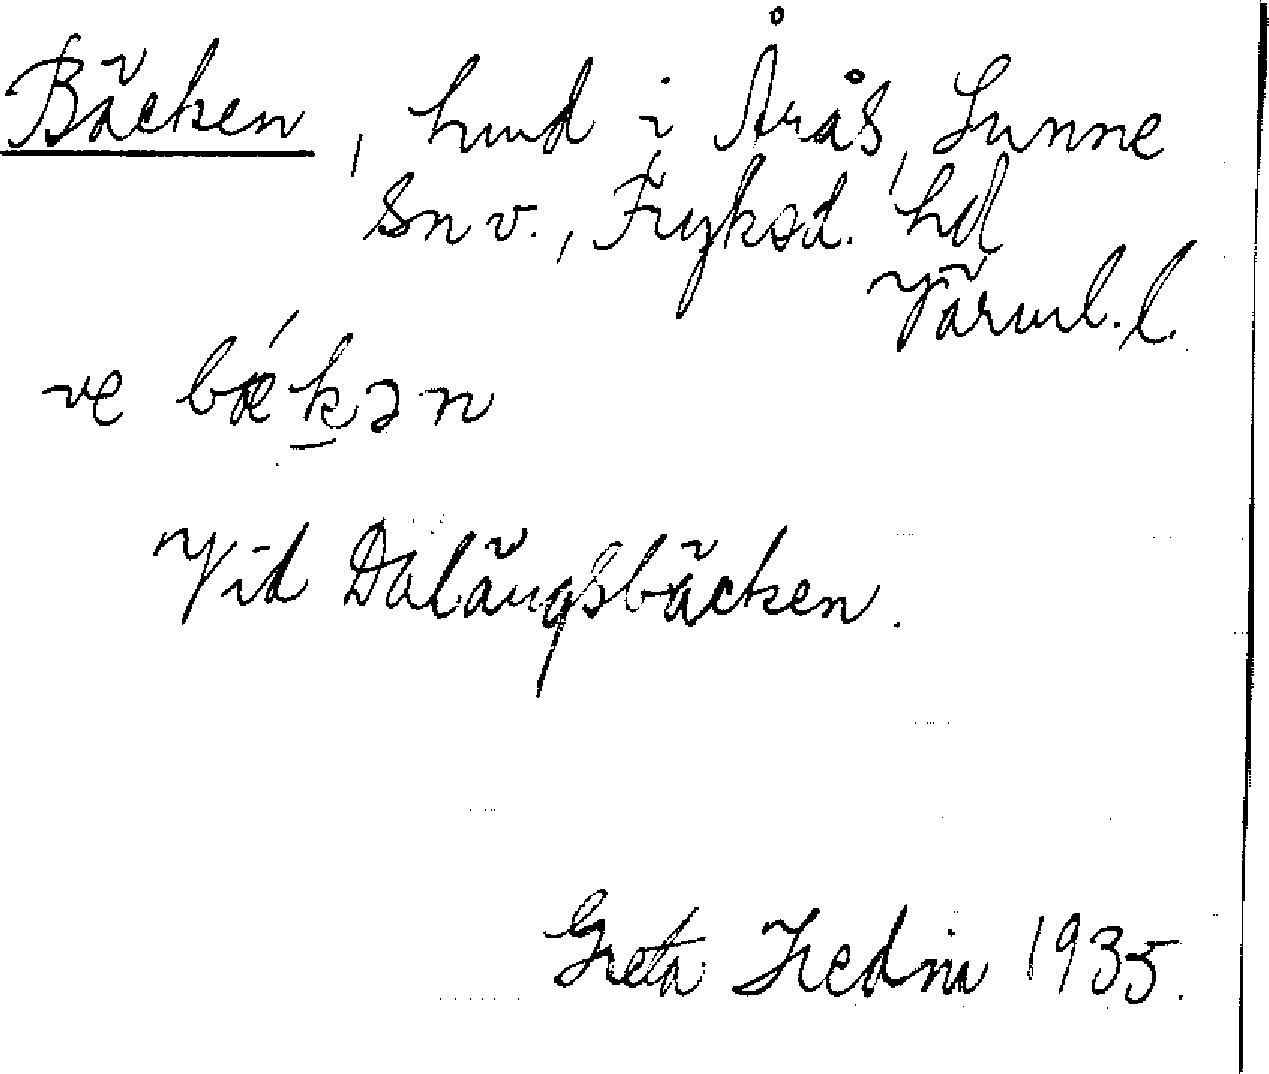 Bäcken, hmd i Årås, Sunne
sn v., Fryksd. hd
Värml. l.
ve bǽk̲ən
Vid Dalängsbäcken.
Greta Hedin 1935.